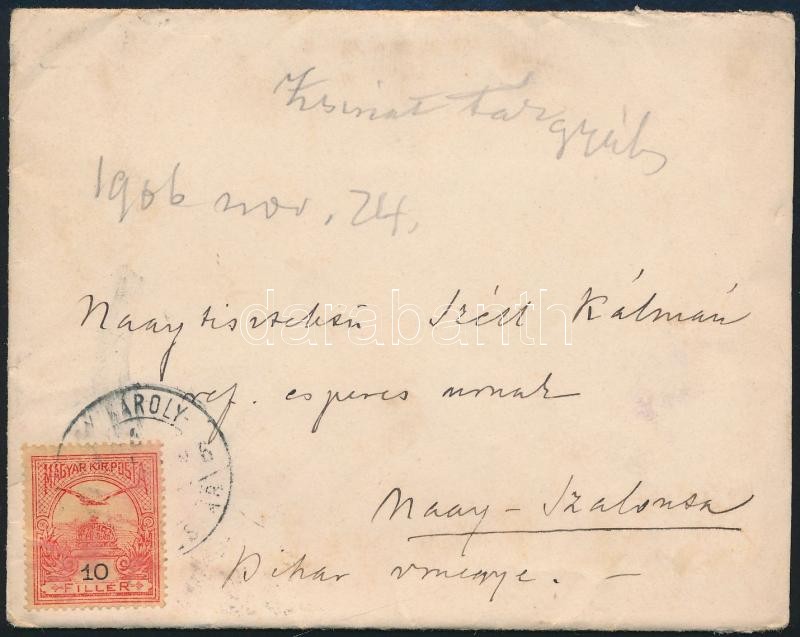 Zsinat tárgyalás
1906 nov. 24.
Nagytiszteletű Széll Kálmán
ref. esperes urnak
Nagy-Szalonta
Bihar vmegye. –
KÁROLY-
MAGYAR KIR. POSTA
10
FILLÉR
darabanth